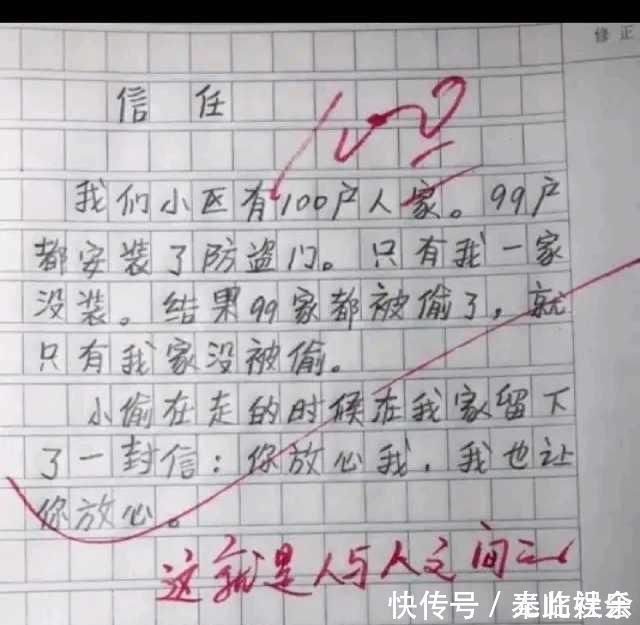 修正
信任
100
我们小区有100户人家。99户
都安装了防盗门。只有我一家
没装。结果99家都被偷了，就
只有我家没被偷。
小偷在走的时候在我家留下
了一封信：你放心我，我也让
你放心。
这就是人与人之间
快传号／